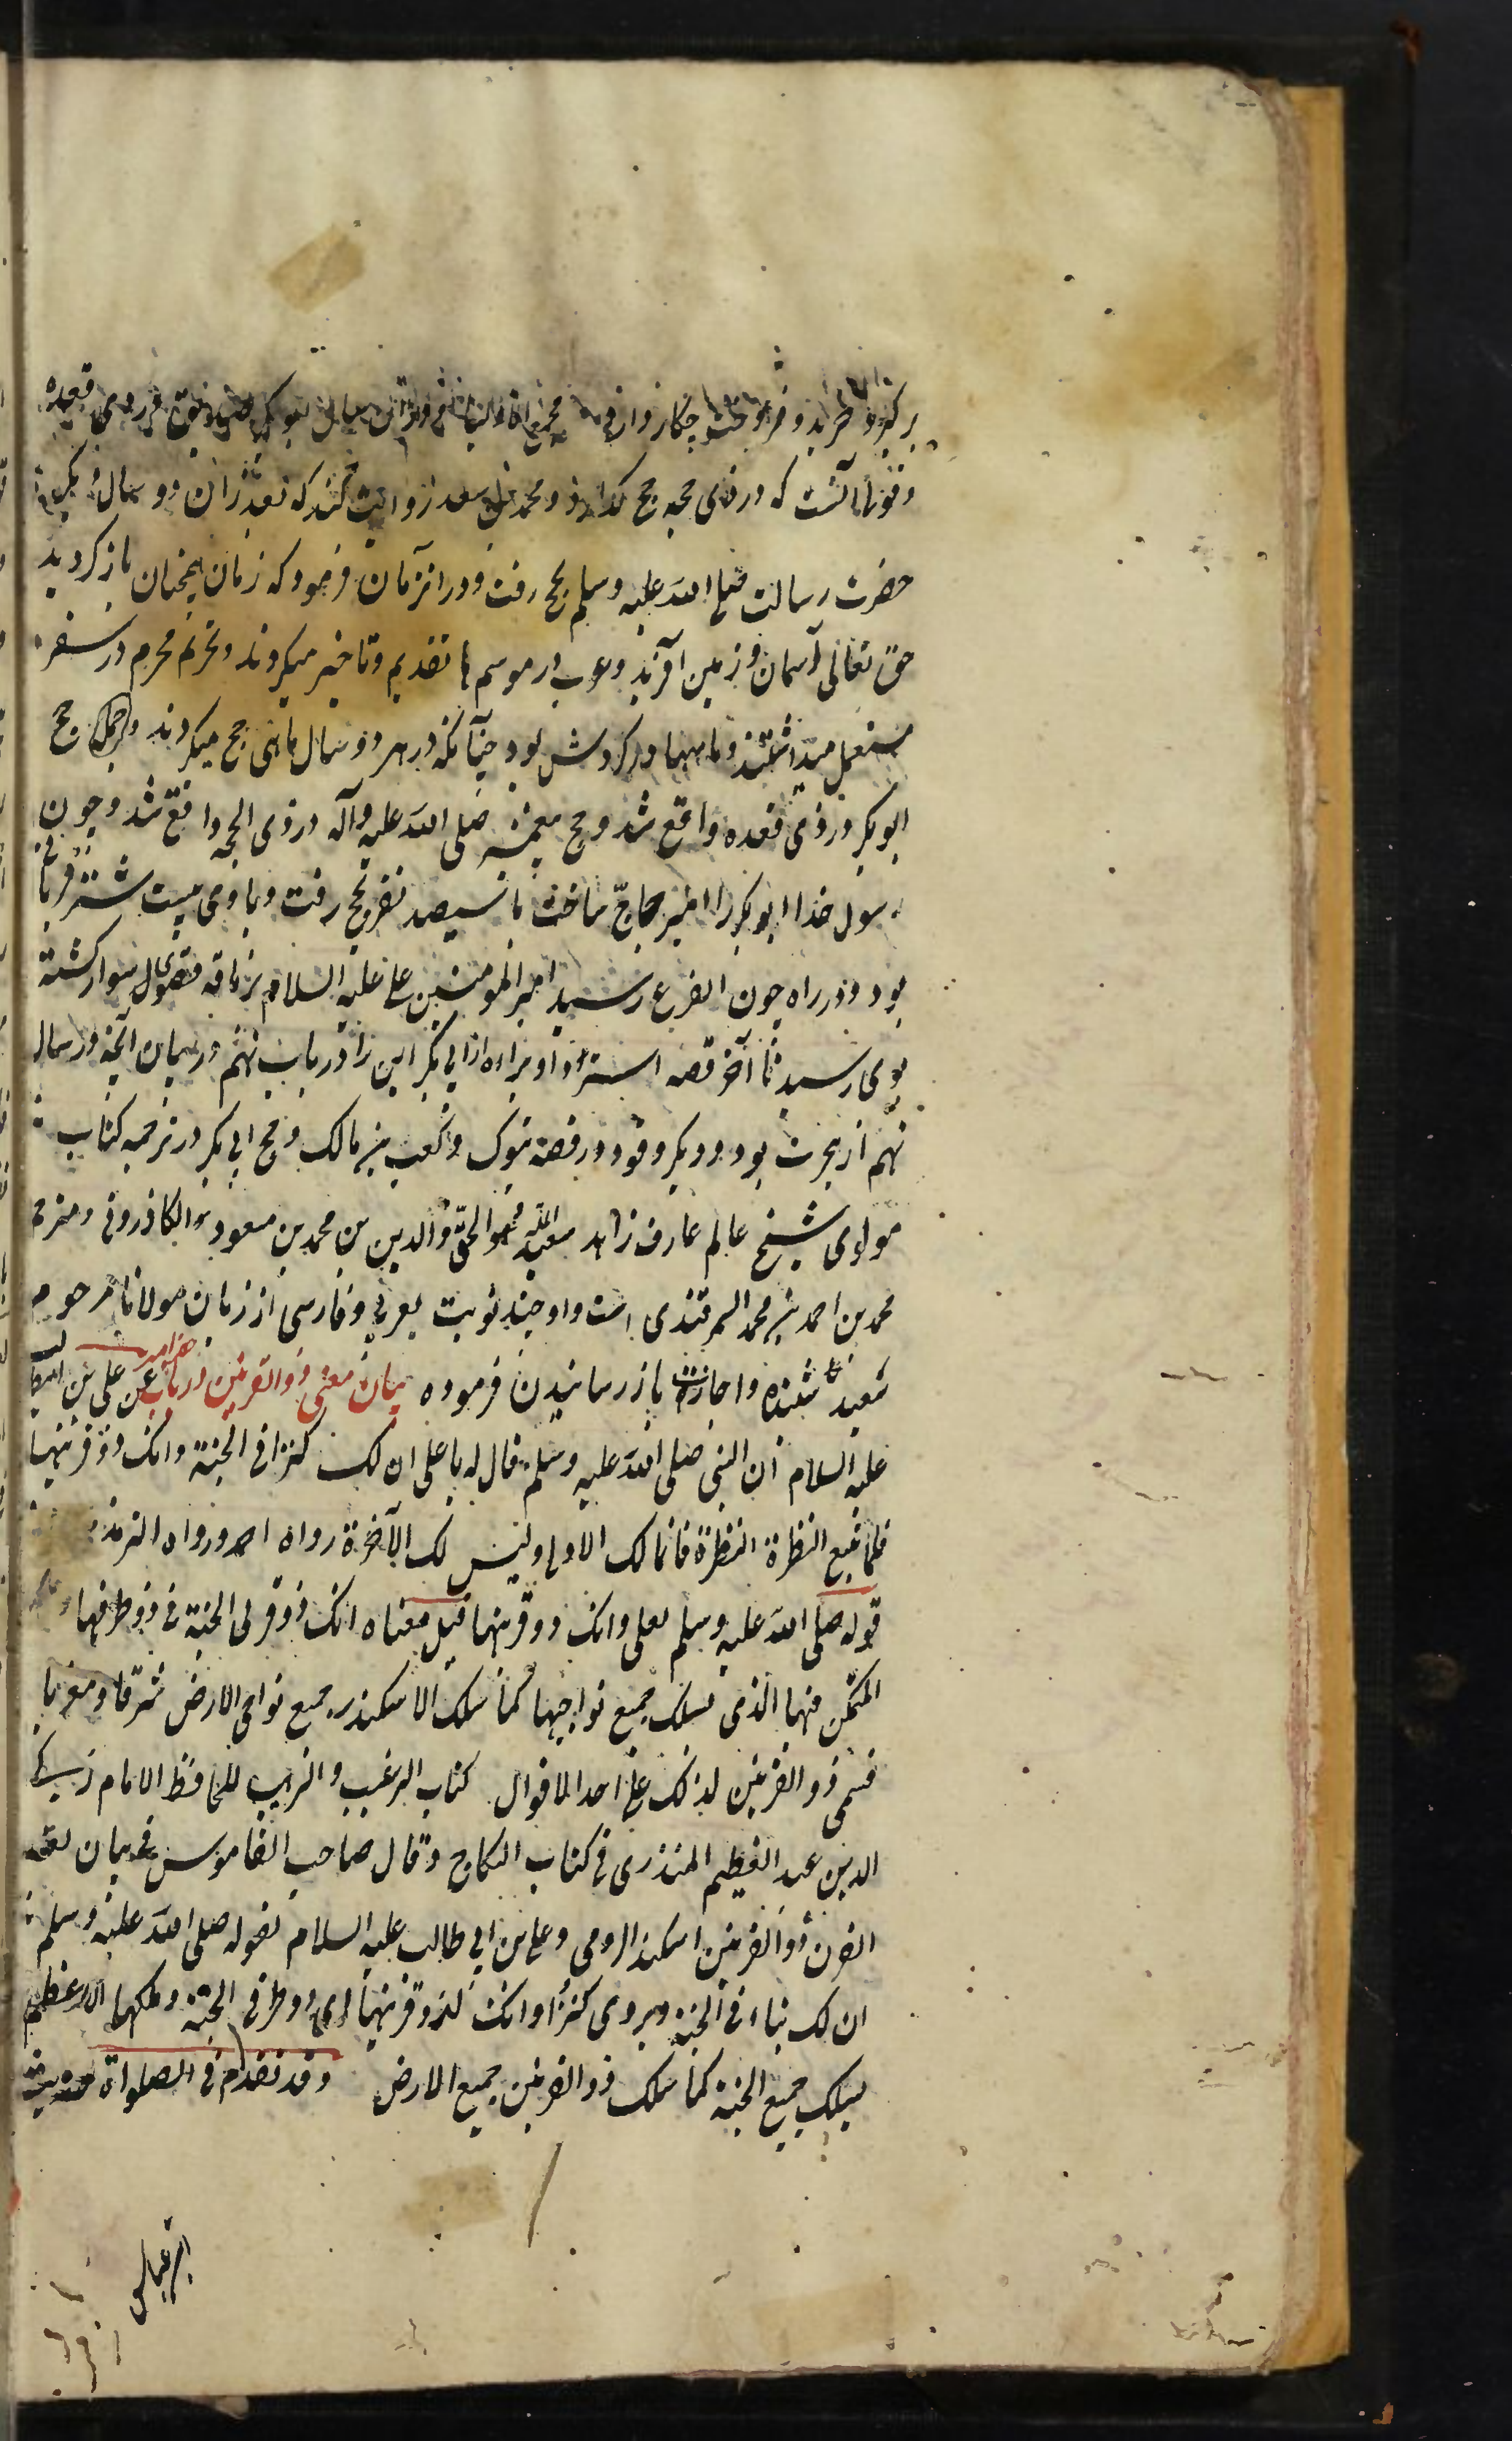 و فقها آنست که در ذی حجه حج کذارد و محمد بن سعد روایت کند که بعد از ان دو سال
حضرت رسالت صلی الله علیه وسلم بحج رفت و در انزمان فرمود که زمان همچنان باز کردید
حق تعالی آسمان و زمین آفرید و عرب در موسم ها تقدیم و تاخیر میکردند و تحریم محرم در سفر
مستعمل میداشتند و ماهها در کردش بود چنآنکه در هر دو سال ماهی حج میکردند حج
ابو بکر در ذی قعده واقع شد و حج پیغمبر صلی الله علیه وآله در ذی الحجه واقع شد و چون
رسول خدا ابو بکر را امیر حاج ساخت با سیصد نفر بحج رفت و با وی بیست شتر قربانی
بود و در راه چون العرج رسید امیر المومنین علی علیه السلام بر ناقه سوار کشته
بوی رسید تا آخر قصه استرداد براءه از ابی بکر این را در باب نهم در بیان آنچه در سال
نهم از هجرت بود و ذکر وفود در قصه تبوک و کعب بن مالک و حج ابی بکر در ترجمه کتاب
مولوی شیخ عالم عارف زاهد الحق والدین بن محمد بن مسعود الکاذرونی و مترجم
محمد بن احمد بن محمد السمرقندی است و او چند نوبت بعربی و فارسی از زبان مولانا مرحوم
سعید شنیده و اجازت باز رسانیدن فرموده بیان معنی ذو القرنین در باب عن علی بن ابیطالب
علیه السلام ان النبی صلی الله علیه وسلم قال له یا علی ان لک کنزا فی الجنة وانک ذو قرنیها
فلا تتبع النظرة النظرة فانما لک الاولی ولیس لک الآخرة رواه احمد ورواه الترمذی
قوله صلی الله علیه وسلم لعلی وانک ذو قرنیها قیل معناه انک ذو قرنی الجنة ذو طرفیها
المتمکن منها الذی تسلک جمیع نواحیها کما سلک الاسکندر جمیع نواحی الارض شرقا ومغربا
فسمی ذو القرنین لذلک علی احد الاقوال کتاب الترغیب والترهیب للحافظ الامام زکی
الدین عبد العظیم المنذری فی کتاب النکاح وقال صاحب القاموس فی بیان لغة
القرن ذو القرنین اسکندر الرومی وعلی بن ابی طالب علیه السلام لقوله صلی الله علیه وسلم
ان لک بیتا فی الجنة ویروی کنزا وانک لذو قرنیها ای ذو طرفی الجنة وملکها الاعظم
یسلک جمیع الجنة کما سلک ذو القرنین جمیع الارض وقد تقدم فی الصلواة
ابن عباس